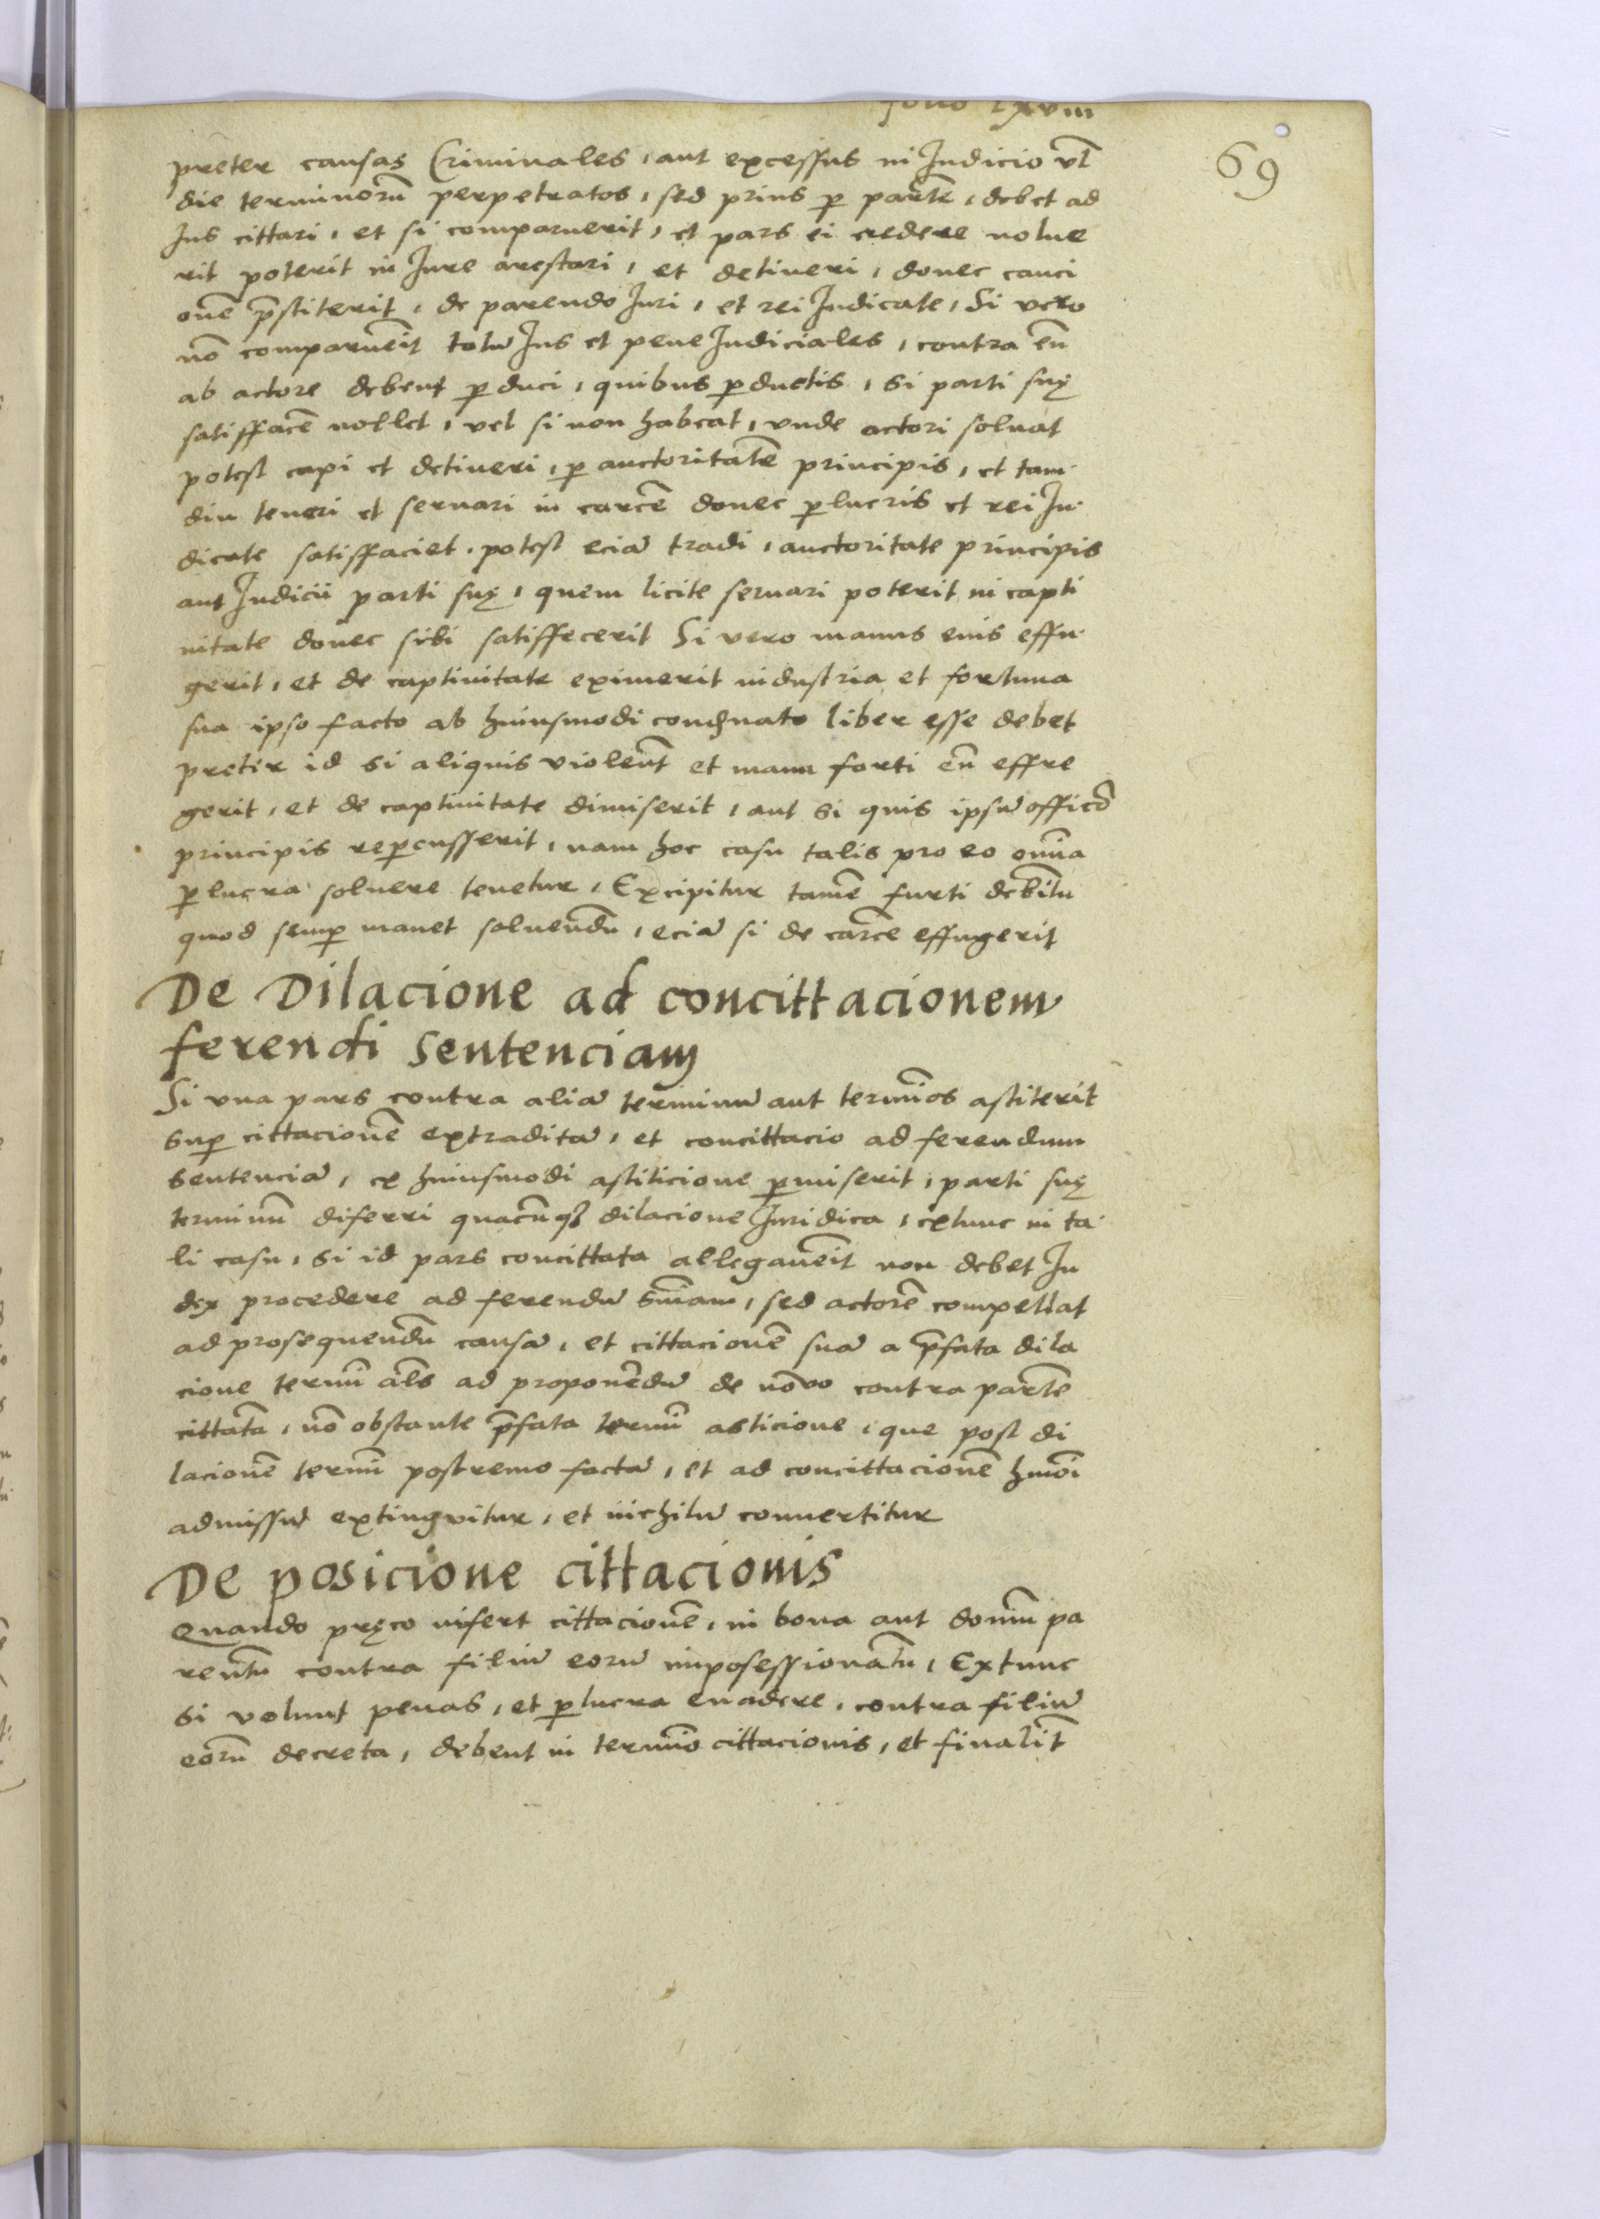 folio Lxviii
69
preter causas Criminales, aut excessus in Judicio vl̄
die terminorū perpetratos, sed prius ꝑ partē, debet ad
Jus cittari, et si comparuerit, et pars ei credere nolue
rit poterit in Jure arestari, et detineri, donec cauci
onē p̄stiterit, de parendo Juri, et rei Judicate, Si vero
nō comparuēit totū Jus et pene Judiciales, contra eū
ab actore debent ꝑduci, quibus ꝑductis, si parti suę
satisffacē nollet, vel si non habeat, vnde actori soluat
potest capi et detineri, ꝑ auctoritatē principis, et tam
diu teneri et seruari in carcē donec ꝑlucris et rei Ju
dicate satisffaciet. potest eciā tradi, auctoritate principis
aut Judicii parti suę, quem licite seruari poterit in capti
uitate donec sibi satisffecerit Si vero manus eius effu
gerit, et de captiuitate eximerit industria et fortuna
sua ipso facto ab huiusmodi condgnato liber esse debet
preter id si aliquis violent̄ et manu forti eū effre
gerit, et de captiuitate dimiserit, aut si quis ipsū officō
principis reꝑcusserit, nam hoc casu talis pro eo om̄ia
ꝑlucra soluere tenetur, Excipitur tamē furti debitū
quod semꝑ manet soluendū, eciā si de carcē effugerit
De Dilacione ad concittacionem
ferendi sentenciam
Si vna pars contra aliā terminū aut termīos astiterit
Suꝑ cittacionē extraditā, et concittacio ad ferendum
sentenciā, ex huiusmodi astiticione ꝑmiserit, parti suę
terminū diferri quacūqȝ dilacione Juridica, extunc in ta
li casu, si id pars concittata allegauēit non debet Ju
dex procedere ad ferendū sn̄iam, sed actorē compellat
ad prosequendū causā, et cittacionē suā a p̄fata dila
cione termī al̄s ad proponendū de nōvo contra partē
cittatā, nō obstante p̄fata termī asticione, que post di
lacionē termī postremo factā, et ad concittacionē hmōi
admissū extingvitur, et nichilū conuertitur
De posicione cittacionis
Quando pręco infert cittacionē, in bona aut domū pa
rentū contra filiū eorū inposessionatū, Extunc
si volunt penas, et ꝑlucra euadere, contra filiū
eorū decreta, debent in termīo cittacionis, et finalit̄